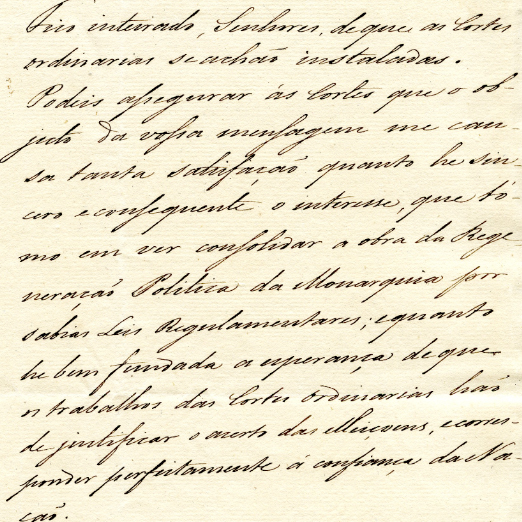 Fico inteirado, Senhores, de que as Cortes
ordinarias se achão instaladas.
Podeis assegurar ás Cortes que o ob-
jecto da vossa mensagem me cau-
sa tanta satisfação quanto he sin-
cero e consequente o interesse, que tó-
mo em ver consolidar a obra da Rege
neração Politica da Monarquia por
sabias Leis Regulamentares; e quanto
he bem fundada a esperança de que
os trabalhos das Cortes Ordinarias hão
de justificar o acerto das Eleiçoens, e corres-
ponder perfeitamente á confiança da Na-
ção.